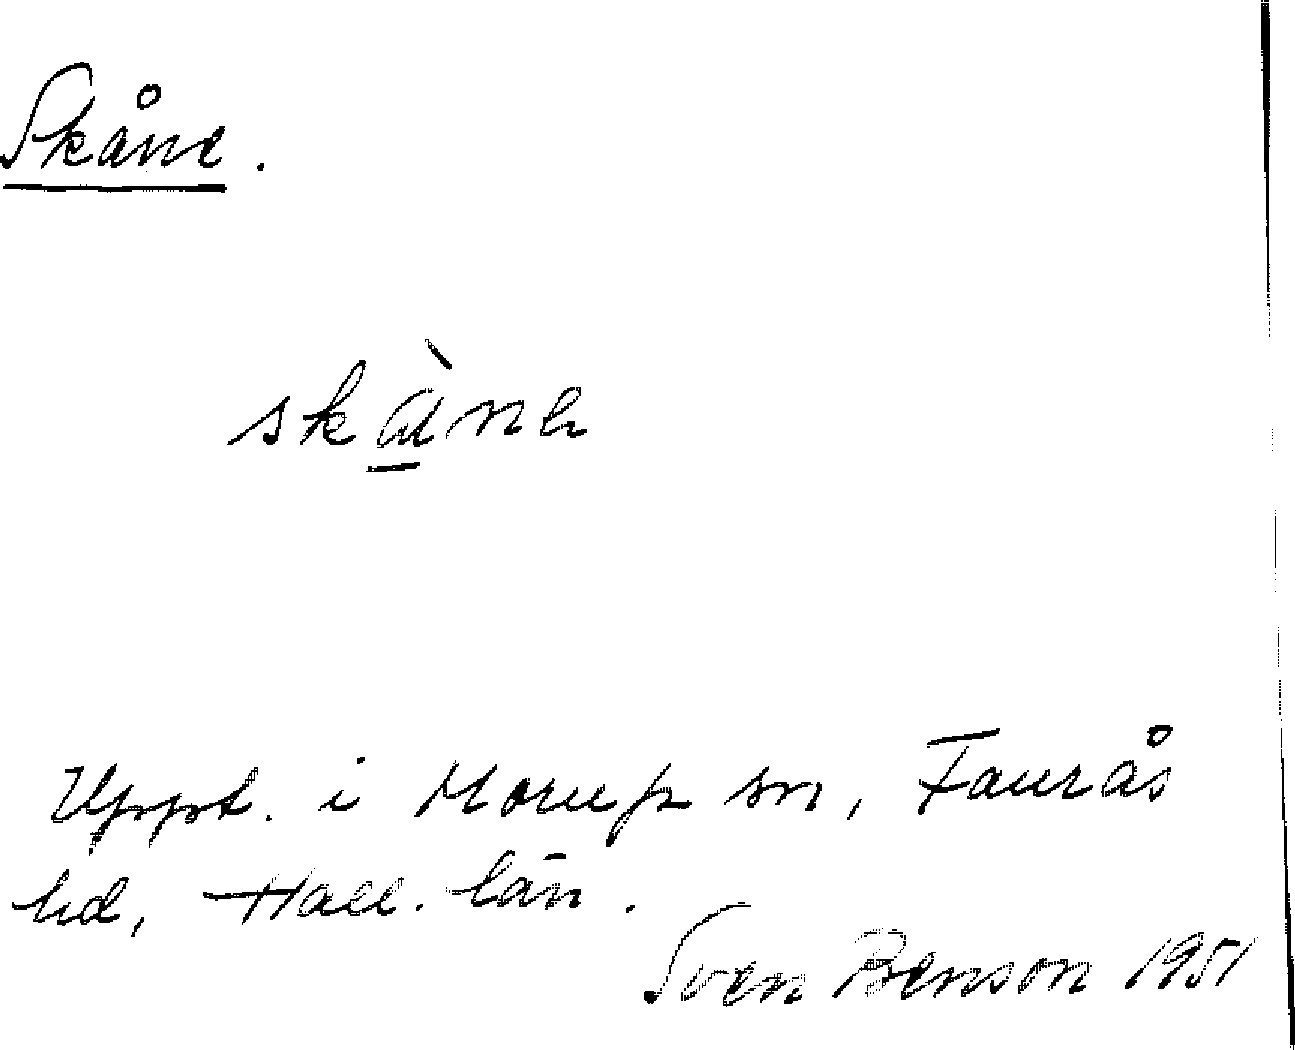 Skåne.
Uppt. i Morup sn, Faurås
hd, Hall. län.
Sven Benson 1951